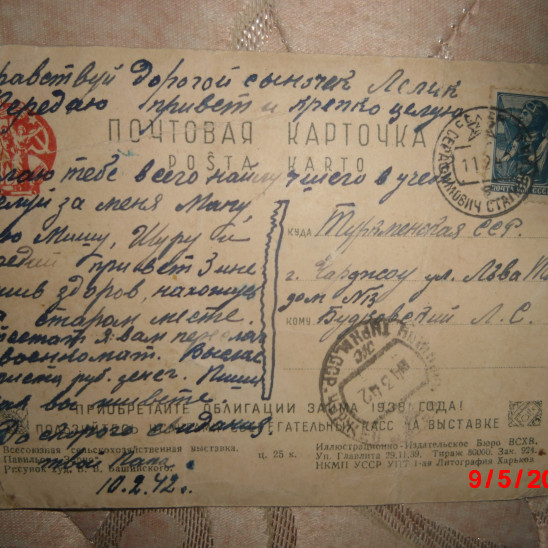 дравствуй дорогой сыночек Лелик
Передаю привет и крепко целую
ПОЧТОВАЯ КАРТОЧКА
POŜTA KARTO
лаю тебе всего найлучшего в учебе
целуй за меня Маму,
Мишу, Шуру и
привет Зине
жив здоров, нахожусь
на старом месте.
я вам
военкомат. Выслал
руб. денег. Пиши
как вы живете
До скорого свидания
твой папа
10.2.42г.
КУДА Туркменская ССР.
г. Чарджоу ул. Льва
дом №13
КОМУ Будковский Л. С.
СЕРАФИМОВИЧ СТАЛ
ПОЧТА СССР
ПРИОБРЕТАЙТЕ ОБЛИГАЦИИ ЗАЙМА 1938 ГОДА!
СБЕРЕГАТЕЛЬНЫХ КАСС НА ВЫСТАВКЕ
Всесоюзная сельскохозяйственная выставка.
Павильон
Рисунок худ. Башинского.
ц. 25 к.
Иллюстрационно-Издательское Бюро ВСХВ.
Уп. Главлита 29.11.39. Тираж 80000. Зак. 924.
НКМП УССР УПП 1-ая Литография Харьков
9/5/20